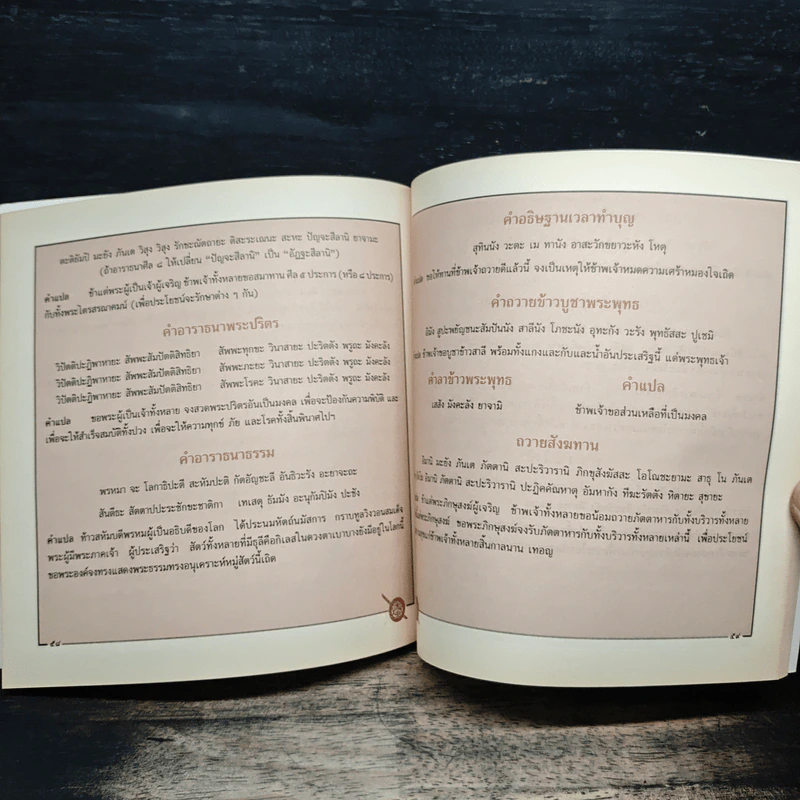 ตะติยัมปิ มะยัง ภันเต วิสุง วิสุง รักขะณัตถายะ ติสะระเณนะ สะหะ ปัญจะสีลานิ ยาจามะ
(ถ้าอาราธนาศีล ๘ ให้เปลี่ยน "ปัญจะสีลานิ" เป็น "อัฏฐะสีลานิ")
คำแปล ข้าแต่พระผู้เป็นเจ้าผู้เจริญ ข้าพเจ้าทั้งหลายขอสมาทาน ศีล ๕ ประการ (หรือ ๘ ประการ)
กับทั้งพระไตรสรณาคมน์ (เพื่อประโยชน์จะรักษาต่าง ๆ กัน)
คำอาราธนาพระปริตร
วิปัตติปะฏิพาหายะ สัพพะสัมปัตติสิทธิยา สัพพะทุกขะ วินาสายะ ปะริตตัง พรูถะ มังคะลัง
วิปัตติปะฏิพาหายะ สัพพะสัมปัตติสิทธิยา สัพพะภะยะ วินาสายะ ปะริตตัง พรูถะ มังคะลัง
วิปัตติปะฏิพาหายะ สัพพะสัมปัตติสิทธิยา สัพพะโรคะ วินาสายะ ปะริตตัง พรูถะ มังคะลัง
คำแปล ขอพระผู้เป็นเจ้าทั้งหลาย จงสวดพระปริตรอันเป็นมงคล เพื่อจะป้องกันความพิบัติ และ
เพื่อจะให้สำเร็จสมบัติทั้งปวง เพื่อจะให้ความทุกข์ ภัย และโรคทั้งสิ้นพินาศไปฯ
คำอาราธนาธรรม
พรหมา จะ โลกาธิปะตี สะหัมปะติ กัตอัญชะลี อันธิวะรัง อะยาจะถะ
สันตีธะ สัตตาปประชะชักขะชาติกา เทเสตุ ธัมมัง อะนุกัมปิมัง ปะชัง
คำแปล ท้าวสหัมบดีพรหมผู้เป็นอธิบดีของโลก ได้ประนมหัตถ์นมัสการ กราบทูลวิงวอนสมเด็จ
พระผู้มีพระภาคเจ้า ผู้ประเสริฐว่า สัตว์ทั้งหลายที่มีธุลีคือกิเลสในดวงตาเบาบางยังมีอยู่ในโลกนี้
ขอพระองค์จงทรงแสดงพระธรรมทรงอนุเคราะห์หมู่สัตว์นี้เถิด
๕๘
คำอธิษฐานเวลาทำบุญ
สุทินนัง วะตะ เม ทานัง อาสะวักขยาวะหัง โหตุ
ขอให้ทานที่ข้าพเจ้าถวายดีแล้วนี้ จงเป็นเหตุให้ข้าพเจ้าหมดความเศร้าหมองใจเถิด
คำถวายข้าวบูชาพระพุทธ
สูปะพยัญชนะสัมปันนัง สาลีนัง โภชะนัง อุทะกัง วะรัง พุทธัสสะ ปูเชมิ
ข้าพเจ้าขอบูชาข้าวสาลี พร้อมทั้งแกงและกับและน้ำอันประเสริฐนี้ แด่พระพุทธเจ้า
คำลาข้าวพระพุทธ คำแปล
เสสัง มังคะลัง ยาจามิ ข้าพเจ้าขอส่วนเหลือที่เป็นมงคล
ถวายสังฆทาน
อิมานิ มะยัง ภันเต ภัตตานิ สะปะริวารานิ ภิกขุสังฆัสสะ โอโณชะยามะ สาธุ โน ภันเต
อิมานิ ภัตตานิ สะปะริวารานิ ปะฏิคคัณหาตุ อัมหากัง ทีฆะรัตตัง หิตายะ สุขายะ
ข้าแต่พระภิกษุสงฆ์ผู้เจริญ ข้าพเจ้าทั้งหลายขอน้อมถวายภัตตาหารกับทั้งบริวารทั้งหลาย
พระภิกษุสงฆ์ ขอพระภิกษุสงฆ์จงรับภัตตาหารกับทั้งบริวารทั้งหลายเหล่านี้ เพื่อประโยชน์
ข้าพเจ้าทั้งหลายสิ้นกาลนาน เทอญ
๕๙